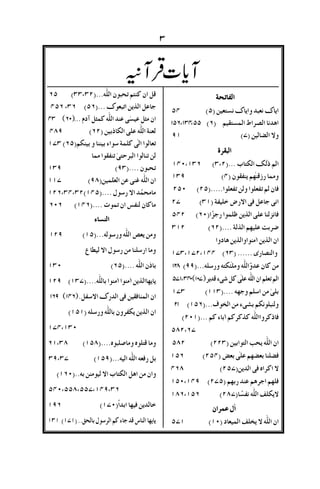 ۳
آیات قرآنیہ
الفاتحة
ایاک نعبد وایاک نستعین (۵) ۵۶
اہدنا الصراط المستقیم (۶) ۱۵۲،۱۳۳/۵۵
ولا الضالین (۷) ۹۱
البقرة
الم ذلک الکتاب ...(۳،۲) ۱۴۰،۱۳۲
ومما رزقنٰہم ینفقون (۴) ۱۳۹
فان لم تفعلوا ولن تفعلوا.....(۲۵) ۲۵۰
انی جاعل فی الارض خلیفة (۳۱) ۲۷
فانزلنا علی الذین ظلموا رجزًا(۶۰) ۵۳۲
ضربت علیہم الذلة ....(۶۲) ۳۱۲
ان الذین امنوا والذین ھادوا
والنصاریٰ ...... (۶۳) ۱۷۳،۱۷۲،۱۴۴
من کان عدوًّا للّٰہ وملٰئکتہ ورسلہ...(۹۹) ۱۲۹
الم تعلم ان اللّٰہ علیٰ کل شیء قدیر(۱۰۷)
بلیٰ من اسلم وجھہ ....(۱۱۳) ۱۷۳
ولنبلونکم بشیء من الخوف...(۱۵۶) ۲۱
فاذکروا اللّٰہ کذکرکم اٰباء کم ...(۲۰۱)
۵۸۲،۲۷
ان اللّٰہ یحب التوابین (۲۲۳) ۵۸۲
فضلنا بعضھم علی بعض (۲۵۴) ۱۵۲
لا اکراہ فی الدین(۲۵۷) ۳۲۸
فلھم اجرھم عند ربھم (۲۷۵) ۱۵۰،۱۴۹
لایکلف اللّٰہ نفسًا(۲۸۷) ۱۸۲،۱۵۲
اٰل عمران
ان اللّٰہ لا یخلف المیعاد (۱۰) ۵۷۱
قل ان کنتم تحبون اللّٰہ...(۳۳،۳۲) ۲۵
جاعل الذین اتبعوک ...(۵۶) ۳۵۲،۳۲
ان مثل عیسیٰ عند اللّٰہ کمثل اٰدم ...(۶۰) ۴۳
لعنة اللّٰہ علی الکاذبین (۶۲) ۳۸۹
تعالوا الیٰ کلمة سواء بیننا و بینکم(۶۵) ۱۷۳
لن تنالوا البر حتیٰ تنفقوا مما
تحبون ....(۹۳) ۱۳۹
ان اللّٰہ غنی عن العلمین(۹۸) ۱۱۷
وما محمّد الا رسول ....(۱۴۵) ۱۴۴،۳۷،۳۳
ماکان لنفس ان تموت ....(۱۴۶) ۲۰۲
النساء
ومن یعص اللّٰہ ورسولہ...(۱۵) ۱۲۹
وما ارسلنا من رسول الا لیطاع
باذن اللّٰہ ....(۶۵) ۱۳۰
یایھا الذین اٰمنوا اٰمنوا باللّٰہ....(۱۳۷) ۱۲۹
ان المنافقین فی الدرک الاسفل (۱۴۶) ۱۲۹
ان الذین یکفرون باللّٰہ ورسلہ (۱۵۱)
۱۷۴،۱۳۰
وما قتلوہ وماصلبوہ....(۱۵۸) ۳۸،۲۱
بل رفعہ اللّٰہ الیہ...(۱۵۹) ۳۹،۳۷
وان من اھل الکتاب الا لیومنن بہ...(۱۶۰)
۵۴۰،۵۵۸،۵۵۷،۱۴۹،۳۲
خالدین فیھا ابدًا(۱۷۰) ۱۹۲
یایھا الناس قد جاء کم الرسول بالحق..(۱۷۱) ۱۳۱